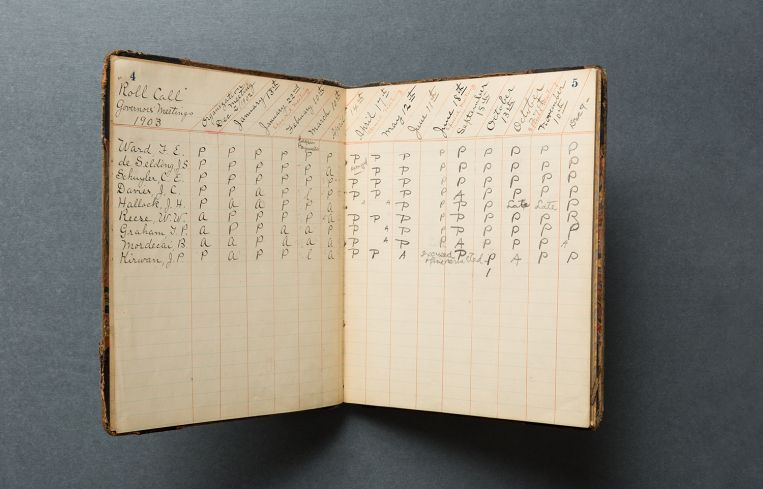 4
"Roll Call"
Governors' Meetings
1903
Organization
Dec
January 13th
January 22nd
February 10th
March 10th
Ward F. E. P P P P P P
de Selding J.S. P P P P P A
Schuyler C. E. P P P P P P
Davies J. C. P P A P P
Hallock, J. H. A P P P P A
Reese, W. W. A P P P A
Graham T. P. A A P A A A
Mordecai B. P A P A A A
Kirwan, J. P P A P P A
5
14th
April 17th
May 12th
June 11th
June 18th
September
15th
October
13th
October
November
10th
Dec 9
P P P P P P P P P P
P P P P P P P P P
P P P P P P P P P P
P P P P A P P P P
A A P P P Late Late P
P P P P P P P P P
A P P P P P P P
A P P A P P P A
P P A excused P P A P P